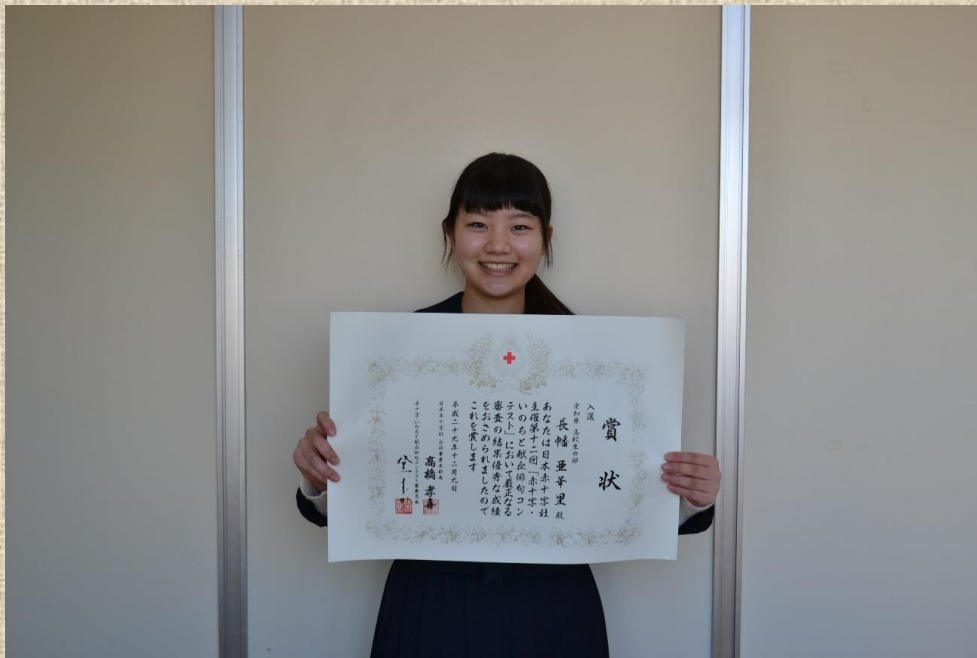 賞状
入選
愛知県 高校生の部
長幡 亜華里 殿
あなたは日本赤十字社
主催第十二回「赤十字・
いのちと献血俳句コン
テスト」において厳正なる
審査の結果優秀な成績
をおさめられましたので
これを賞します
平成二十九年十二月九日
日本赤十字社 血液事業本部長
高橋 孝喜
赤十字・いのちと献血俳句コンテスト審査員長